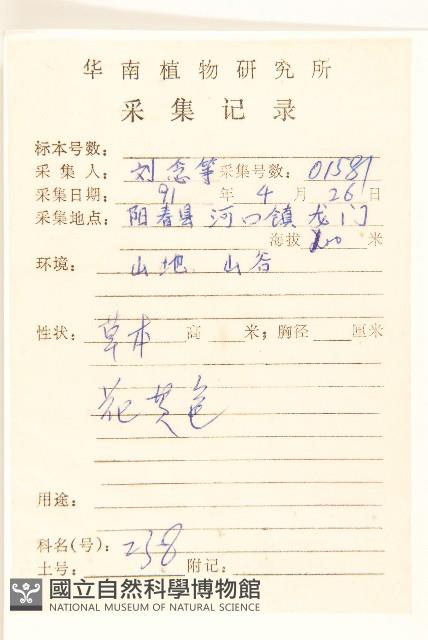 华南植物研究所
采集记录
标本号数:
采集人: 刘念等 采集号数: 01581
采集日期: 91 年 4 月 26 日
采集地点: 阳春县河口镇龙门
海拔 200 米
环境: 山地 山谷
性状: 草本 高 米; 胸径 厘米
花黄色
用途:
科名(号): 238
土号: 附记:
國立自然科學博物館
NATIONAL MUSEUM OF NATURAL SCIENCE